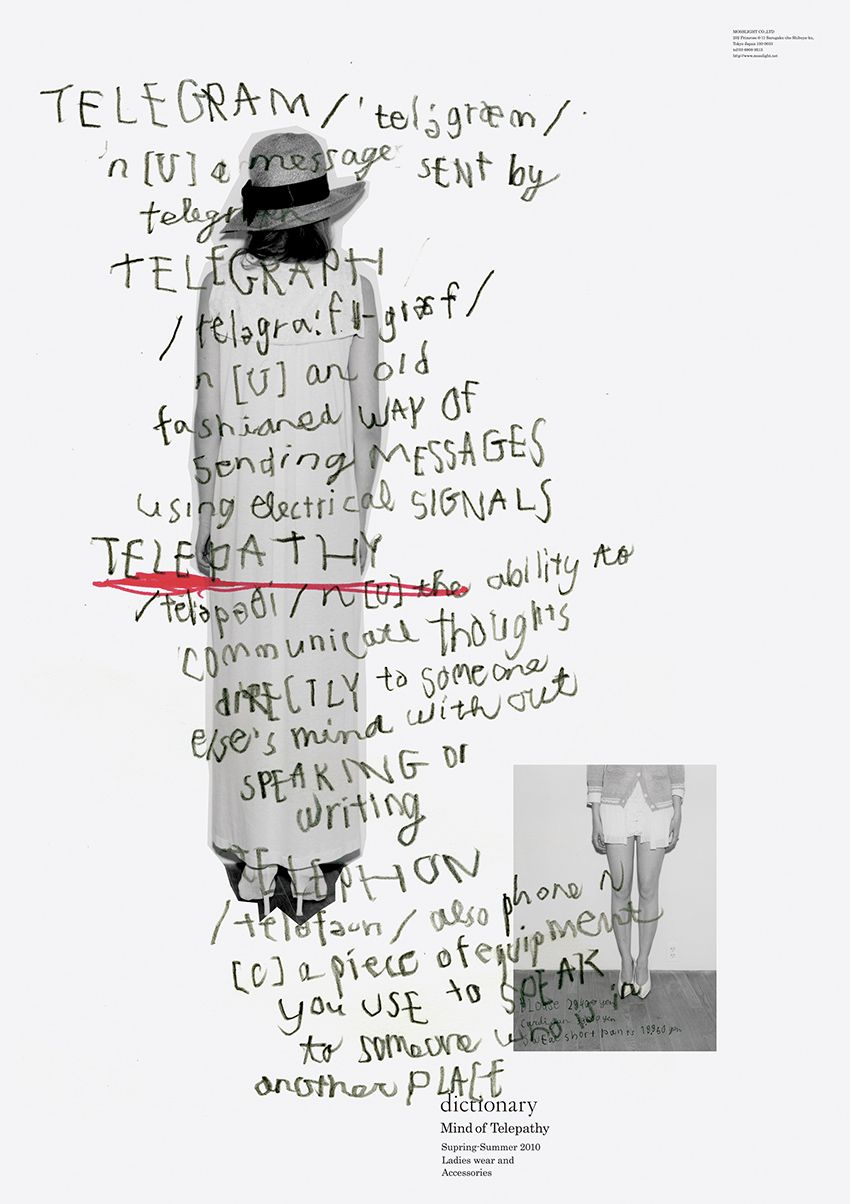 MOSSLIGHT CO.,LTD
http://www.mosslight.net
TELEGRAM / 'teləgræm /
n [U] a message SENt by
telegram
TELEGRAPH
/ teləgra:f ‖-græf /
n [U] an old
fashioned WAY OF
Sending MESSAGES
using electrical SIGNALS
TELEPATHY
/ teləpəθi / n [U] the ability to
communicate thoughts
diRECTLY to someone
else's mind without
SPEAKING or
writing
TELEPHON
/ teləfəun / also phone N
[C] a piece of equipment
you USE to SPEAK
to someone who is in
another PLACE
BLOUSE yen
Cardigan yen
short pants 18,960 yen
dictionary
Mind of Telepathy
Supring-Summer 2010
Ladies wear and
Accessories